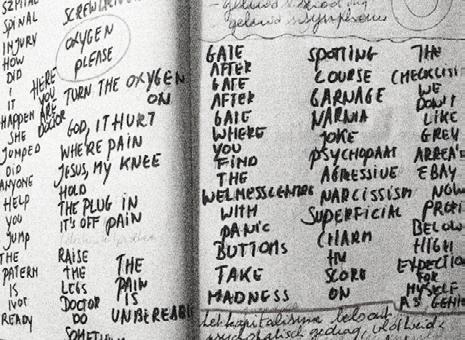 SPINAL
INJURY
HOW
DID
I
IT
HAPPEN
SHE
JUMPED
DID
ANYONE
HELP
YOU
JUMP
THE
PATERN
IS
NOT
READY
HERE
YOU
ARE
DOCTOR
OXYGEN
PLEASE
TURN THE OXYGEN
ON
GOD, IT HURT
WHERE PAIN
JESUS, MY KNEE
HOLD
THE PLUG IN
IT'S OFF PAIN
RAISE
THE
LEGS
DOCTOR
DO
SOMETHING
THE
PAIN
IS
UNBEREABLE
GATE
AFTER
GATE
AFTER
GATE
WHERE
YOU
FIND
THE
WELMESSCENTRE
WITH
PANIC
BUTTONS
TAKE
MADNESS
SPOTTING
COURSE
GARNAGE
NARNIA
JOKE
PSYCHOPAAT
AGRESSIVE
NARCISSISM
SUPERFICIAL
CHARM
IN
SCORE
ON
THE
WE
DON'T
LIKE
GREY
EBAY
NOW
BELOW
HIGH
FOR
MYSELF
AS GENIE
het kapitalisme beloont
psychopatisch gedrag